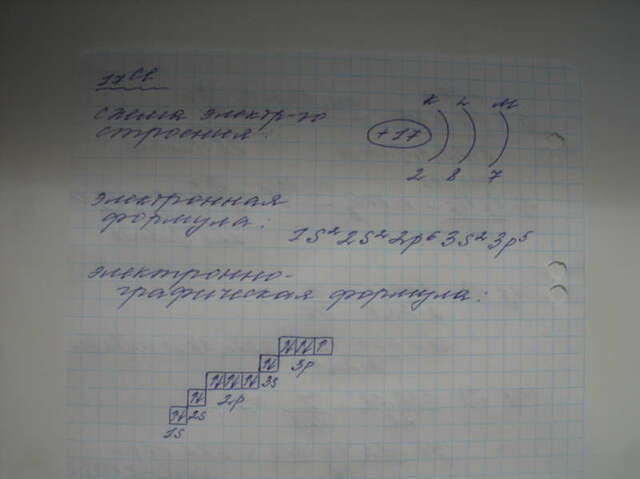 17Cl
схема электр-го
строения:
K L M
+17
2 8 7
электронная
формула:
1s²2s²2p⁶3s²3p⁵
электронно-
графическая формула:
3p
3s
2p
2s
1s